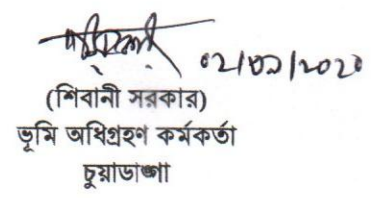 ০২/০৯/২০২০
(শিবানী সরকার)
ভূমি অধিগ্রহণ কর্মকর্তা
চুয়াডাঙ্গা